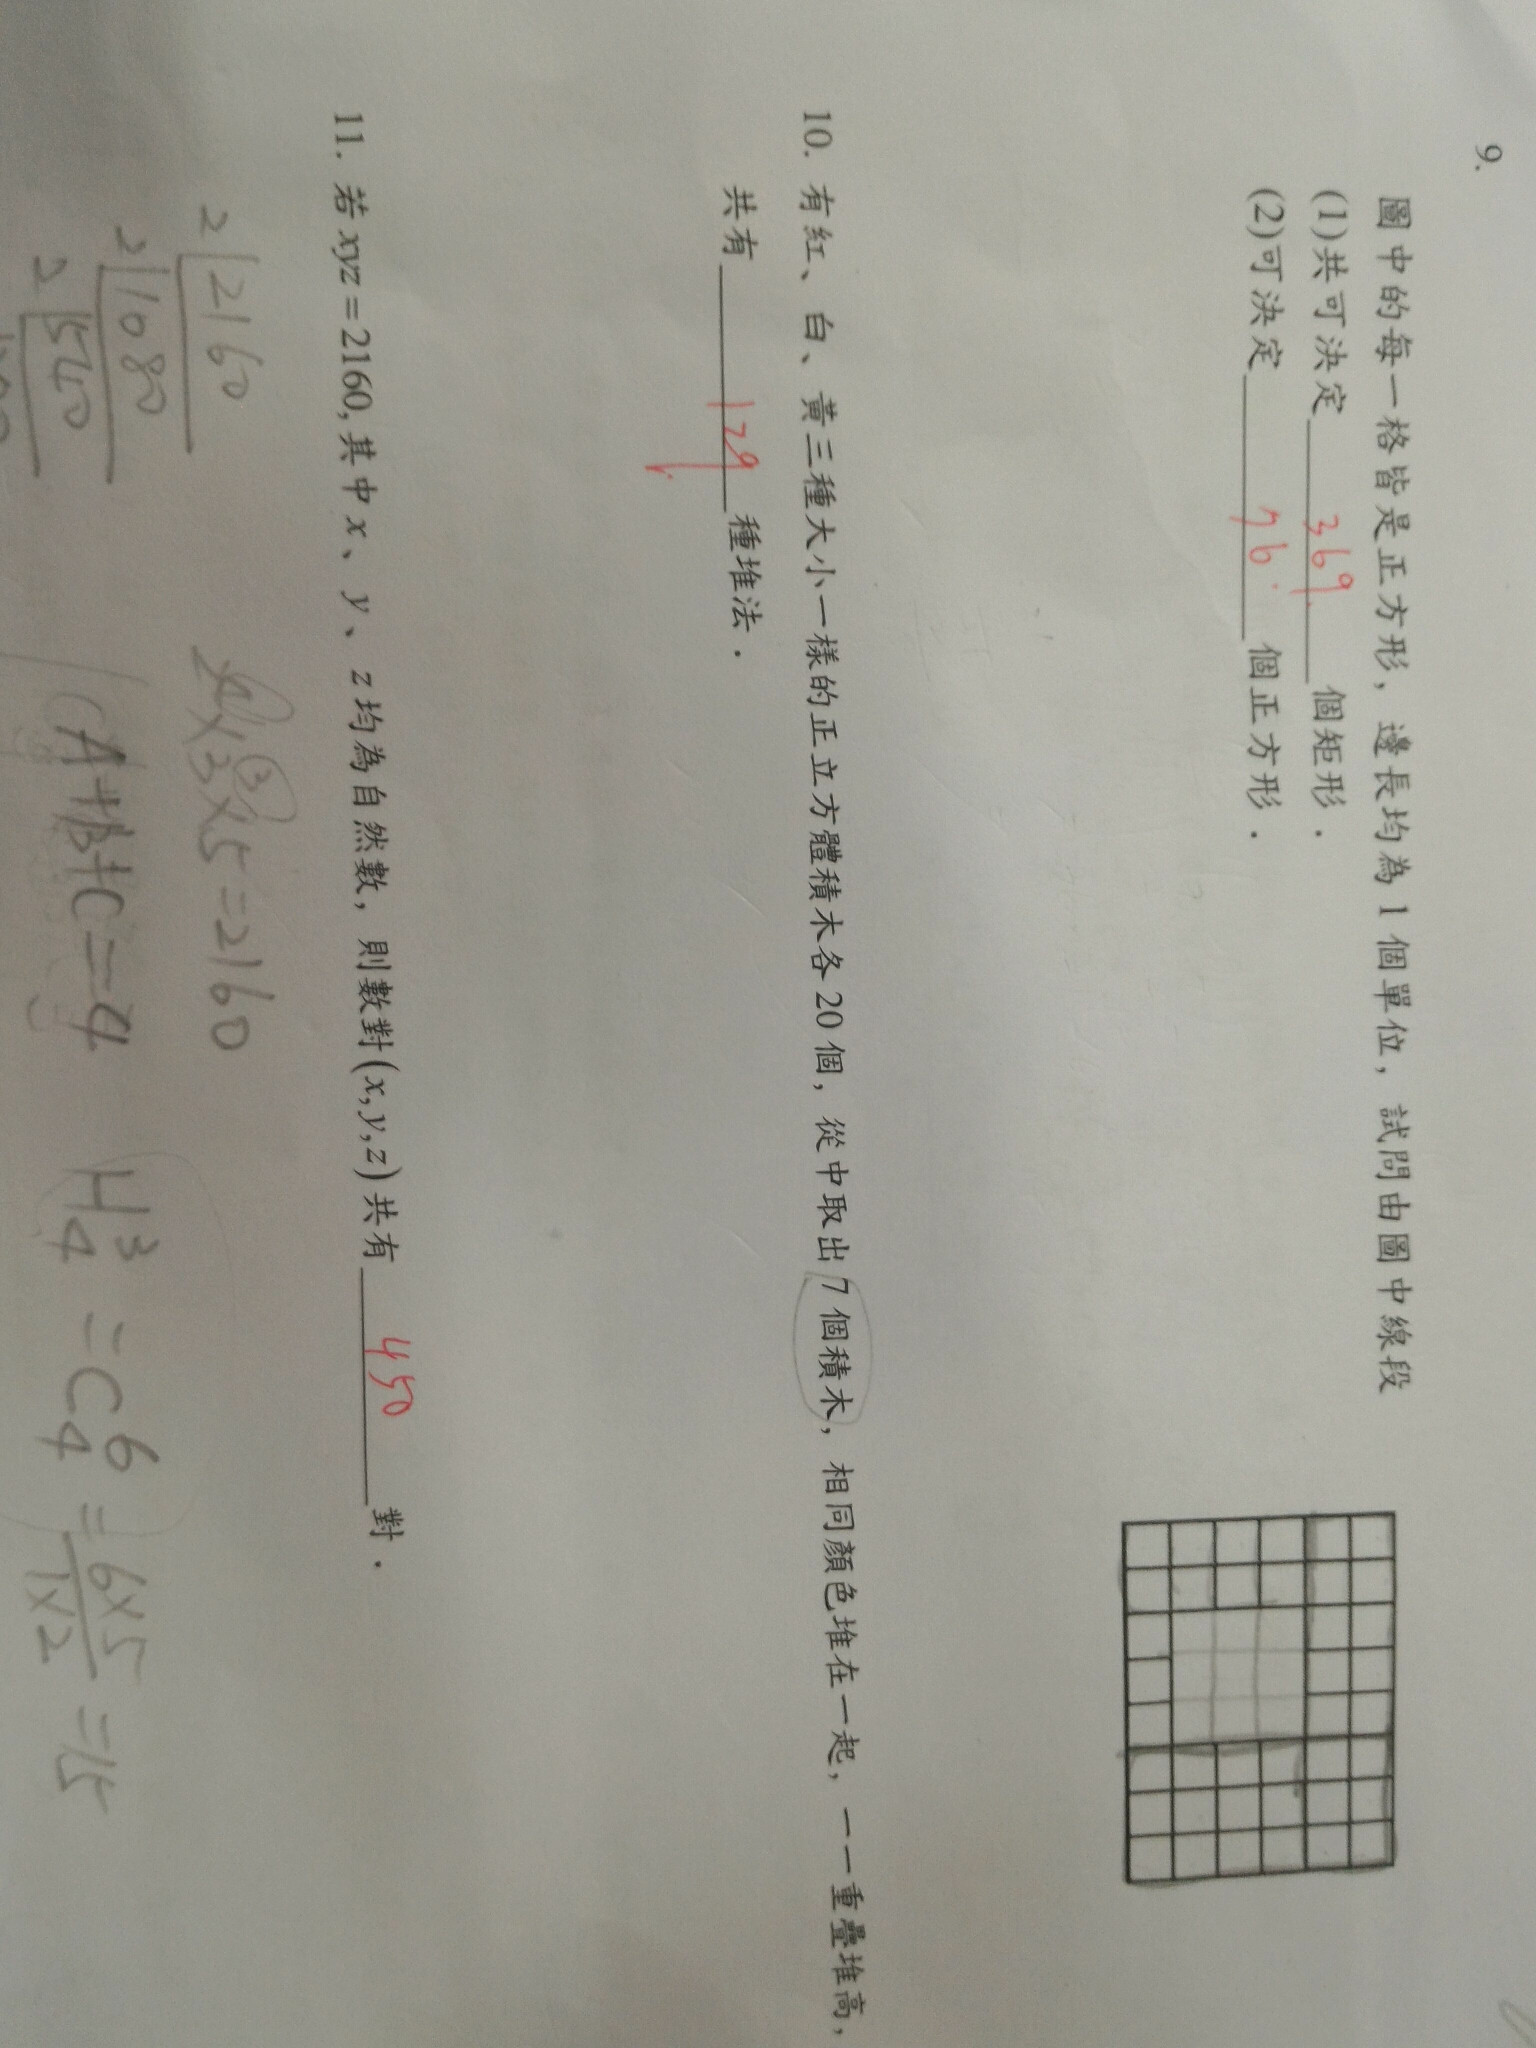 9.
圖中的每一格皆是正方形，邊長均為 1 個單位，試問由圖中線段
(1)共可決定 369 個矩形．
(2)可決定 76 個正方形．
10. 有紅、白、黃三種大小一樣的正立方體積木各 20 個，從中取出 7 個積木，相同顏色堆在一起，一一重疊堆高，
共有 129 種堆法．
11. 若 xyz = 2160，其中 x、y、z 均為自然數，則數對 (x, y, z) 共有 450 對．
2 | 2160
2 | 1080
2 | 540
×3③×5=2160
A+B+C=4 H³₄ = C⁶₄ = 6×5/1×2 = 15